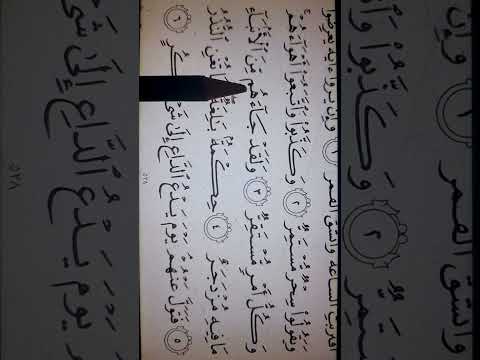 اقتربت الساعة وانشق القمر ١ وإن يروا ءاية يعرضوا
وَيَقُولُوا۟ سِحْرٌ مُّسْتَمِرٌّ ٢ وَكَذَّبُوا۟ وَاتَّبَعُوٓا۟ أَهْوَآءَهُمْ
وَكُلُّ أَمْرٍ مُّسْتَقِرٌّ ٣ وَلَقَدْ جَآءَهُم مِّنَ ٱلْأَنۢبَآءِ
مَا فِيهِ مُزْدَجَرٌ ٤ حِكْمَةٌۢ بَٰلِغَةٌ تُغْنِ ٱلنُّذُرُ
٥ فَتَوَلَّ عَنْهُمْ يَوْمَ يَدْعُ ٱلدَّاعِ إِلَىٰ شَىْءٍ ٦
٥٢٨
وانشق القمر ١ وإن
مُّسْتَمِرٌّ ٢ وَكَذَّبُوا۟
يَوْمَ يَدْعُ ٱلدَّاعِ إِلَىٰ